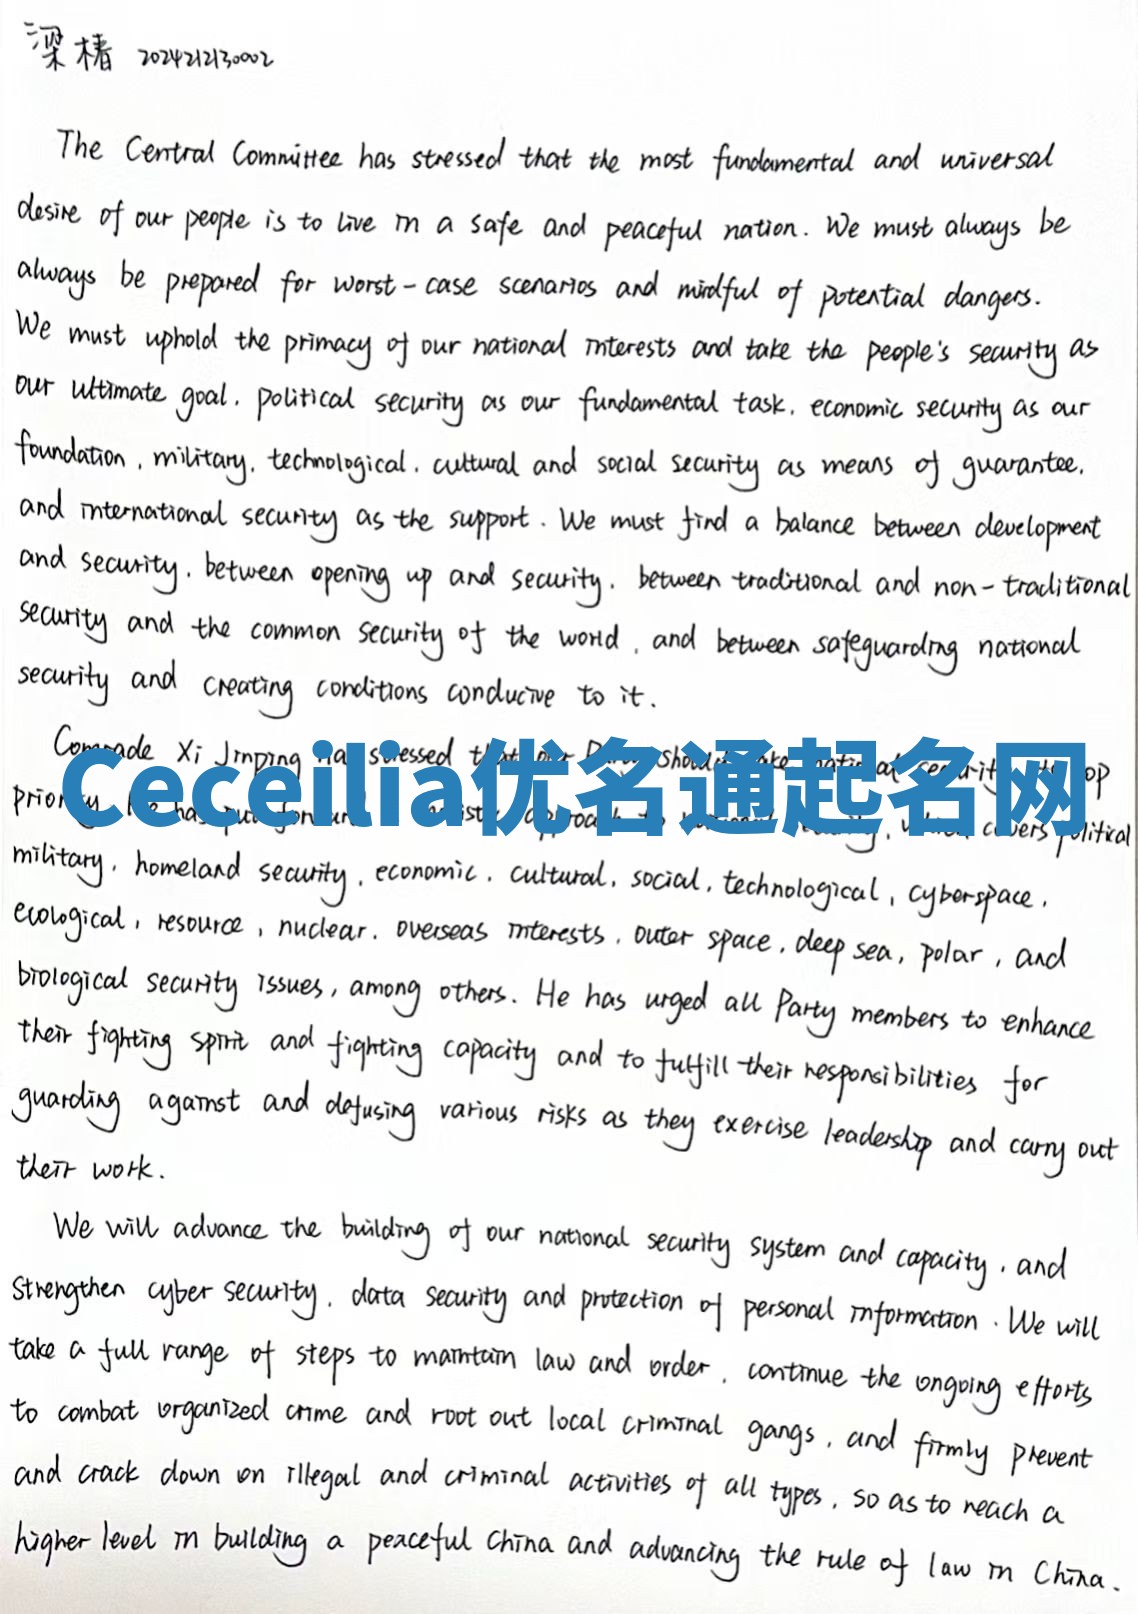 梁椿 2024212130002
The Central Committee has stressed that the most fundamental and universal
desire of our people is to live in a safe and peaceful nation. We must always be
always be prepared for worst-case scenarios and mindful of potential dangers.
We must uphold the primacy of our national interests and take the people's security as
our ultimate goal, political security as our fundamental task, economic security as our
foundation, military, technological, cultural and social security as means of guarantee,
and international security as the support. We must find a balance between development
and security, between opening up and security, between traditional and non-traditional
security and the common security of the world, and between safeguarding national
security and creating conditions conducive to it.
Comrade Xi Jinping has stressed that our Party should take national security its top
Ceceilia优名通起名网
priority. He has put forward approach to covers political
military, homeland security, economic, cultural, social, technological, cyberspace,
ecological, resource, nuclear, overseas interests, outer space, deep sea, polar, and
biological security issues, among others. He has urged all Party members to enhance
their fighting spirit and fighting capacity and to fulfill their responsibilities for
guarding against and defusing various risks as they exercise leadership and carry out
their work.
We will advance the building of our national security system and capacity, and
strengthen cyber security, data security and protection of personal information. We will
take a full range of steps to maintain law and order, continue the ongoing efforts
to combat organized crime and root out local criminal gangs, and firmly prevent
and crack down on illegal and criminal activities of all types, so as to reach a
higher level in building a peaceful China and advancing the rule of law in China.